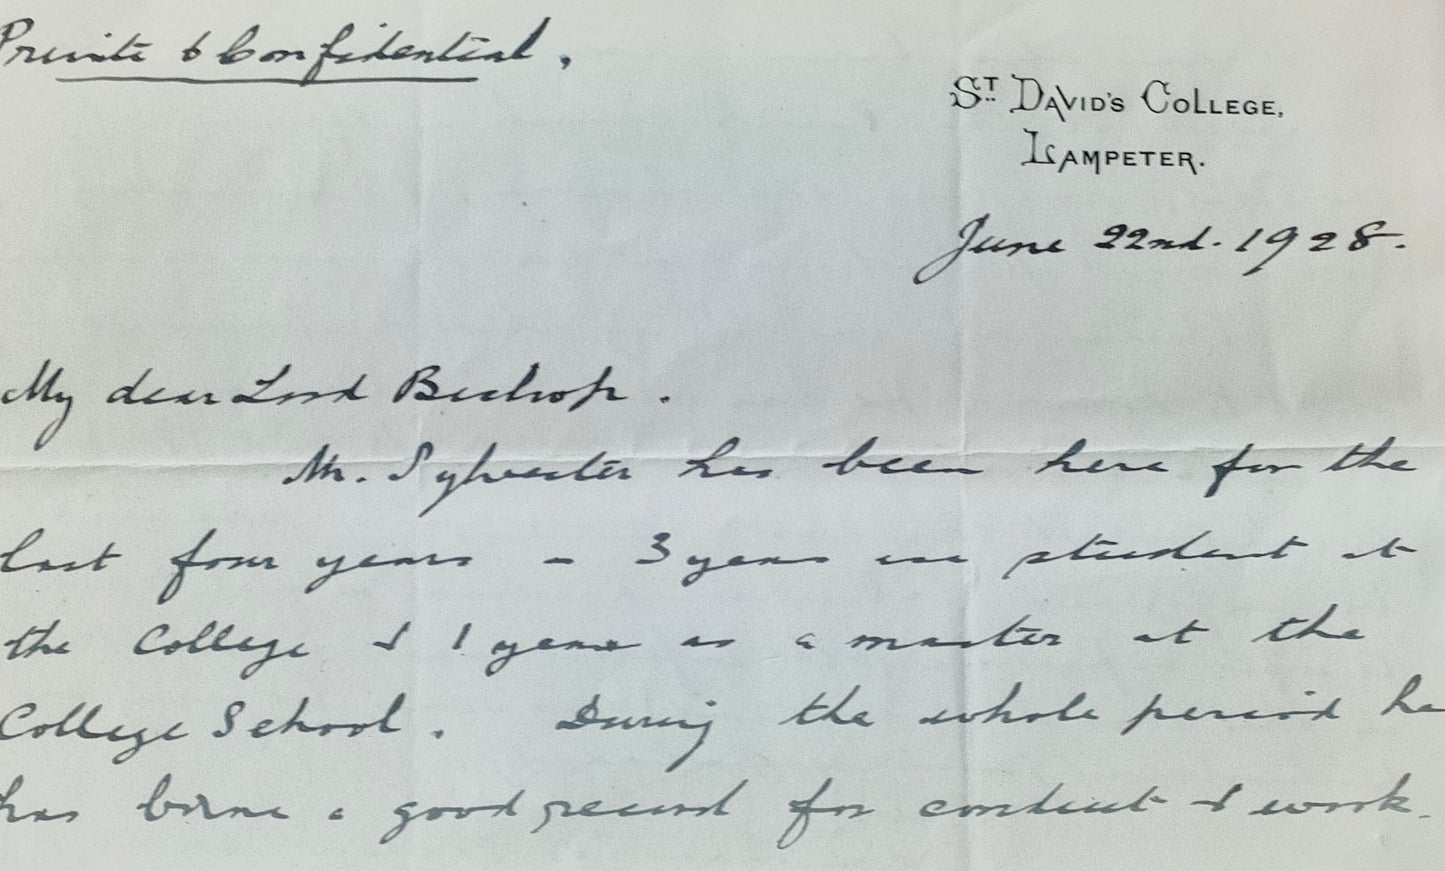 Private & Confidential.
ST. DAVID'S COLLEGE,
LAMPETER.
June 22nd. 1928.
My dear Lord Bishop.
Mr. Sylvester has been here for the
last four years - 3 years as student at
the College & 1 year as a master at the
College School. During the whole period he
has borne a good record for conduct & work.